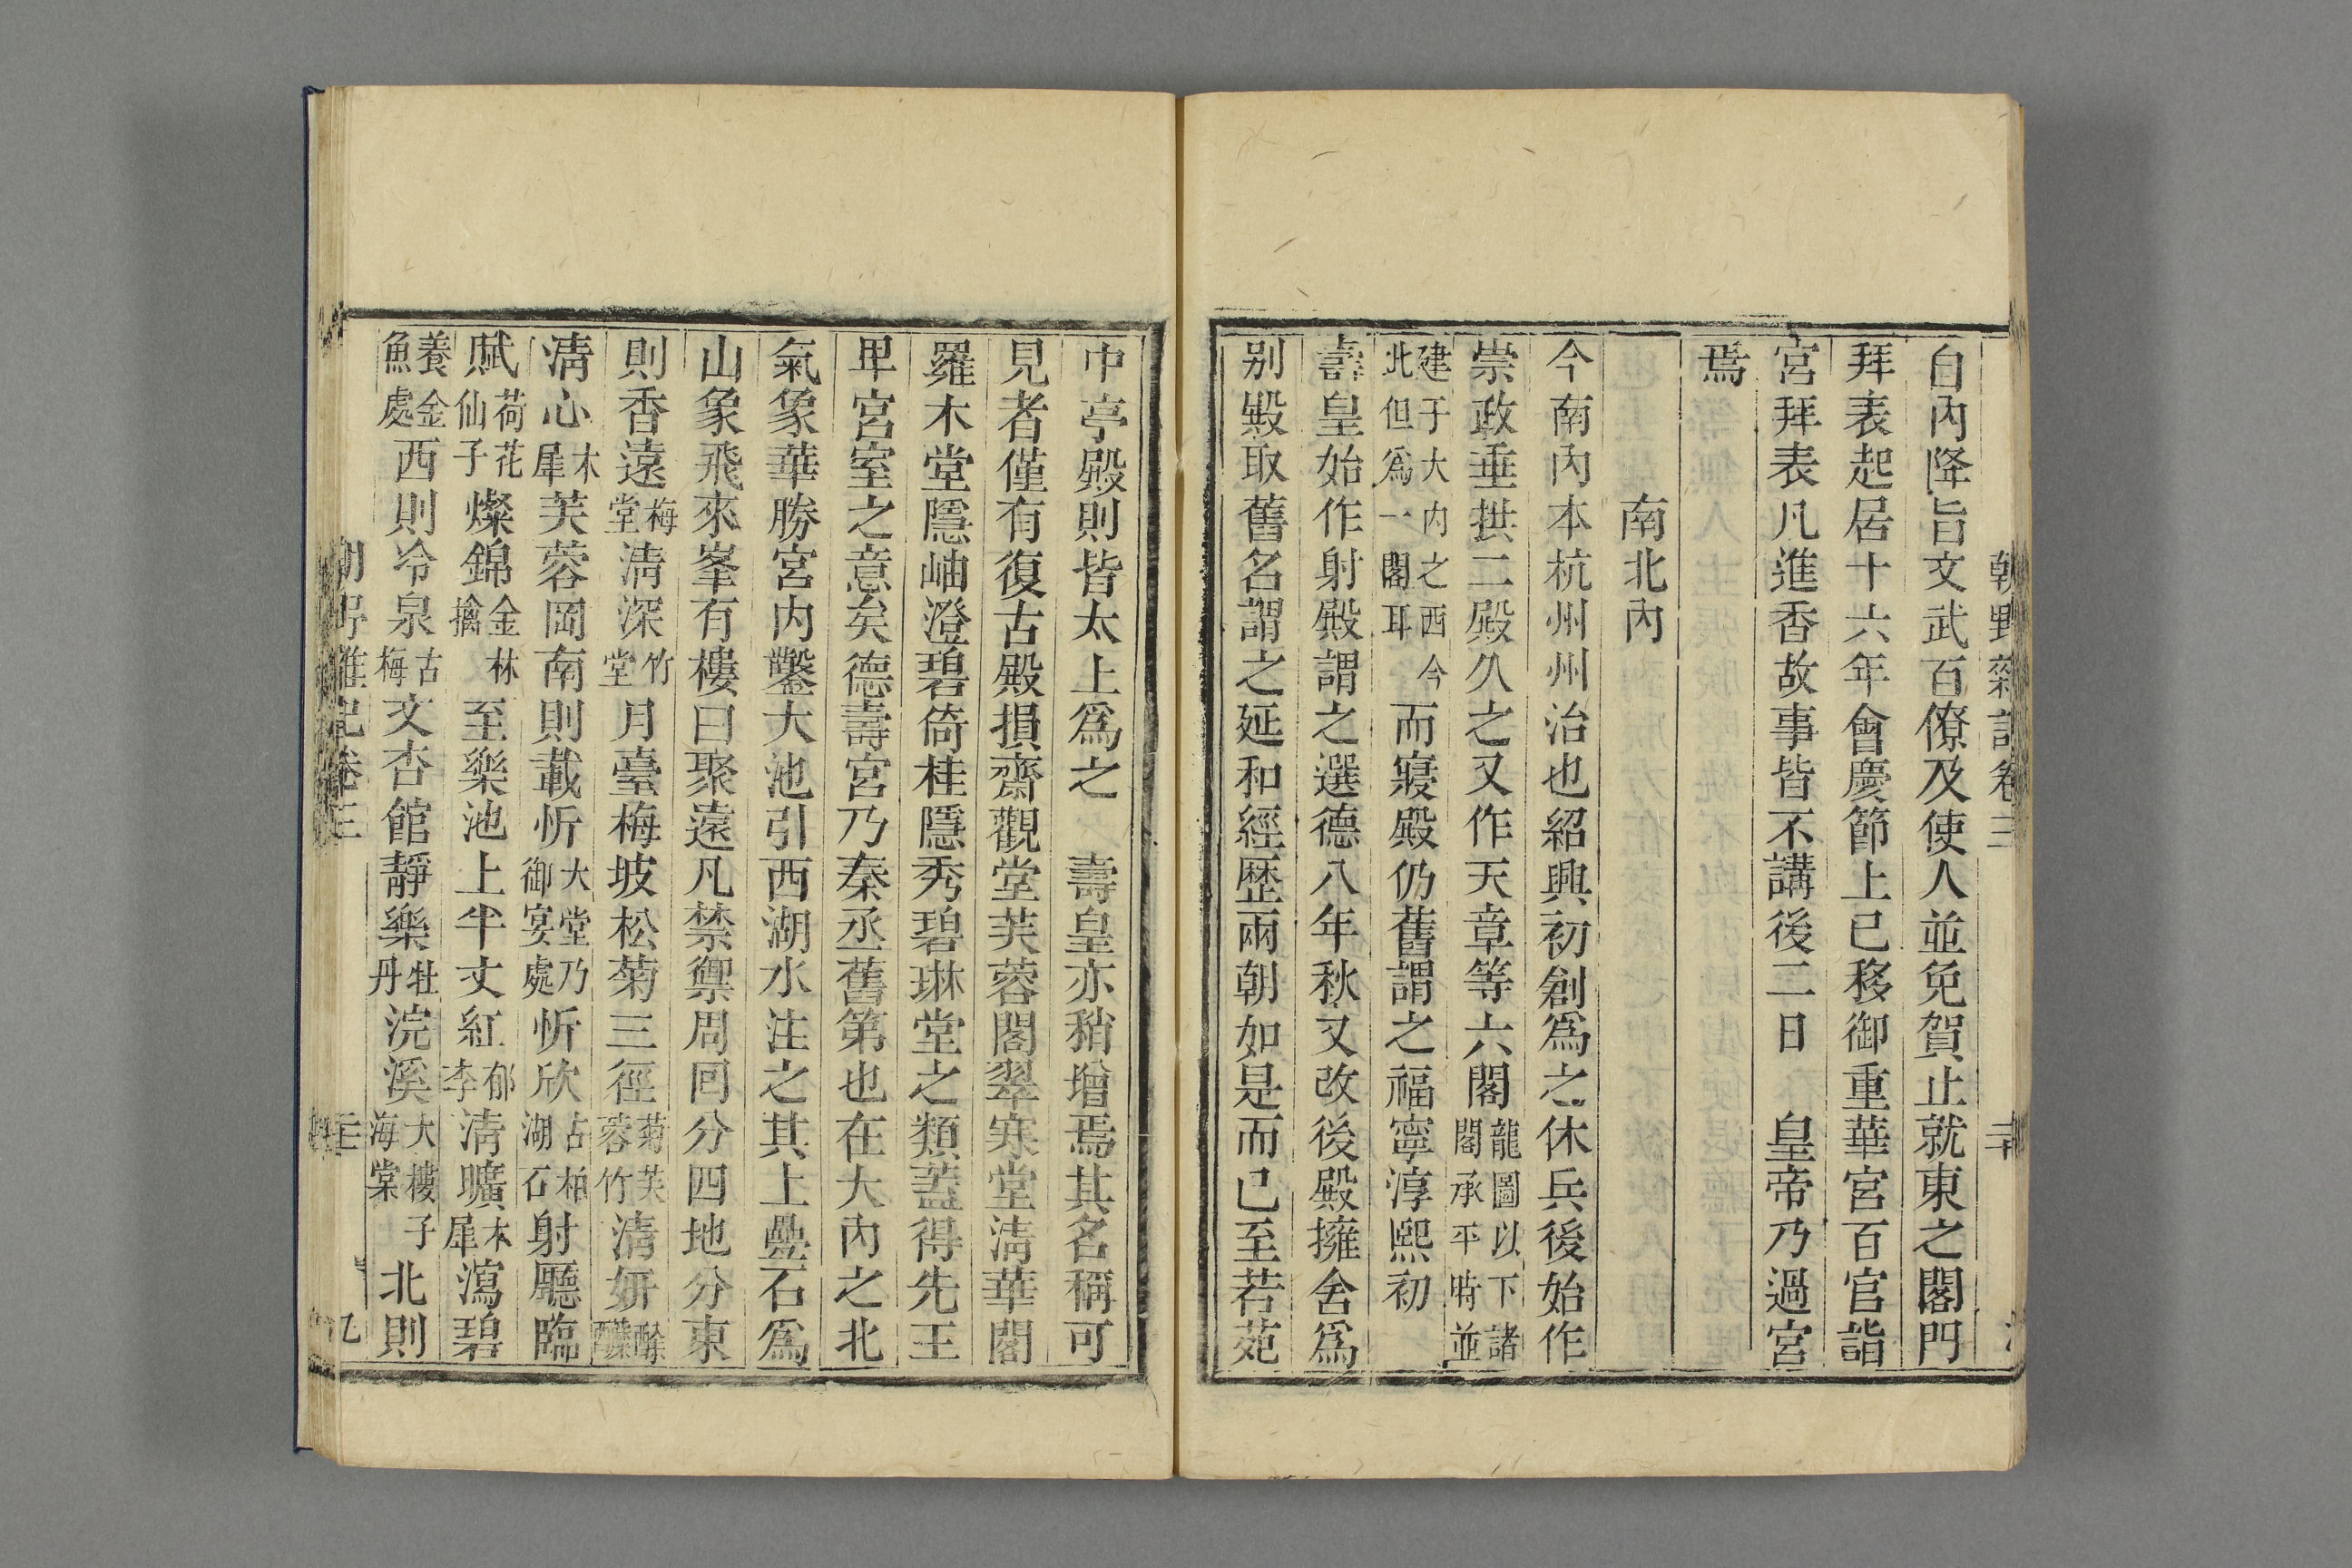 自內降旨文武百僚及使人並免賀止就東之閣門
拜表起居十六年會慶節上已移御重華宮百官詣
宮拜表凡進香故事皆不講後二日　皇帝乃過宮
焉
南北內
今南內本杭州州治也紹興初創爲之休兵後始作
崇政垂拱二殿久之又作天章等六閣龍圖以下諸閣承平時並
建于大內之西今此但爲一閣耳而寢殿仍舊謂之福寧淳熙初
壽皇始作射殿謂之選德八年秋又改後殿擁舍爲
別殿取舊名謂之延和經歷兩朝如是而已至若苑
中亭殿則皆太上爲之　壽皇亦稍增焉其名稱可
見者僅有復古殿損齋觀堂芙蓉閣翠寒堂清華閣
羅木堂隱岫澄碧倚桂隱秀碧琳堂之類蓋得先王
卑宮室之意矣德壽宮乃秦丞舊第也在大內之北
氣象華勝宮內鑿大池引西湖水注之其上疊石爲
山象飛來峯有樓曰聚遠凡禁禦周回分四地分東
則香遠梅堂清深竹堂月臺梅坡松菊三徑菊芙蓉竹清妍酴醾
清心木犀芙蓉岡南則載忻大堂乃御宴處忻欣古柏湖石射廳臨
賦荷花仙子燦錦金林擒至樂池上半丈紅郁李清曠木犀瀉碧
養金魚處西則冷泉古梅文杏館靜樂牡丹浣溪大樓子海棠北則